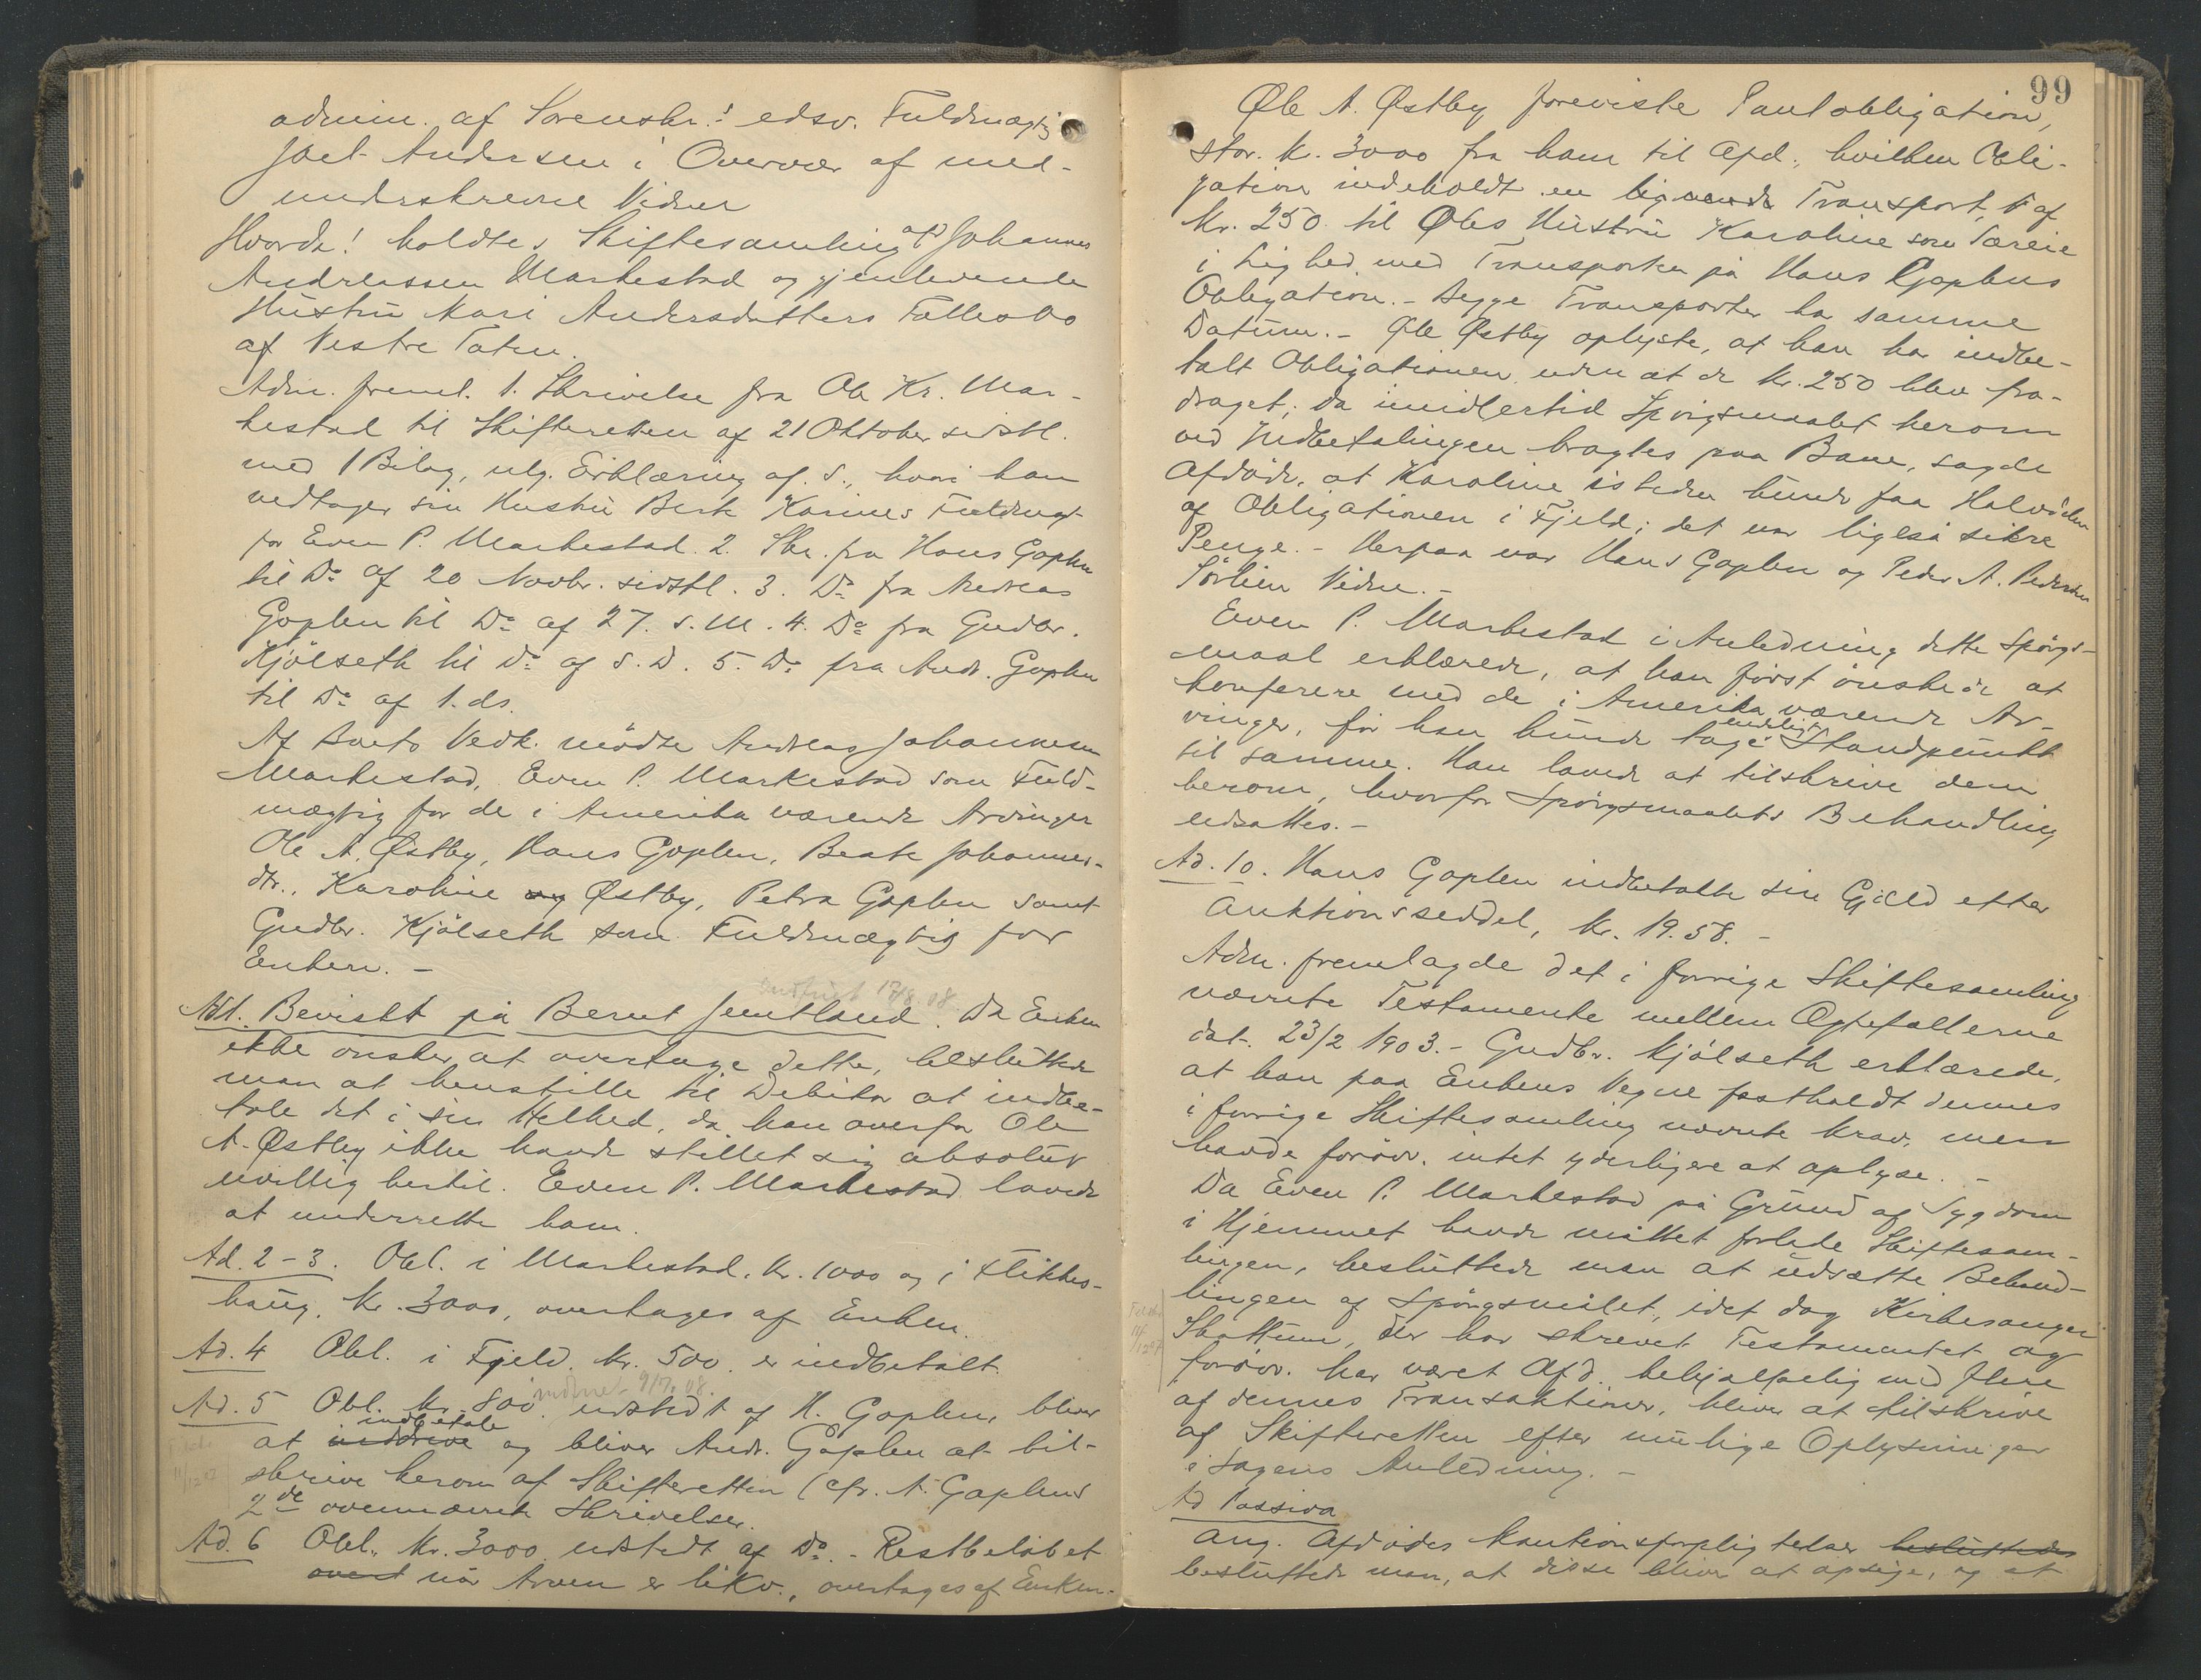 admin. af Sorenskr.: edsv. Fuldmægtig
Joel Andersen i Overvær af med-
underskrevne Vidner
Hvorda! holdtes Skiftesamling af Johannes
Andreassen Markestad og gjenlevende
Hustru Mari Andersdatters Fællesbo
af Vestre Toten.
Adm. freml. 1. Skrivelse fra Ole Kr. Mar-
kestad til Skifteretten af 21 Oktober sidstl.
med 1 Bilag, nlg. Erklæring af s., hvori han
vedtager sin Hustru Berte Karines Fuldmagt
for Even P. Markestad. 2. Skr. fra Hans Goplen
til Do af 20 Novbr. sidstl. 3. Do fra Andreas
Goplen til Do af 27. s. M. 4. Do fra Gudbr.
Kjölseth til Do af s. D. 5. Do fra Andr. Goplen
til Do af 1. ds.
Af Boets Vedk. mödte Andreas Johannesen
Markestad, Even P. Markestad som Fuld-
mægtig for de i Amerika værende Arvinger
Ole A. Østby, Hans Goplen, Beate Johannes-
dtr., Karoline og Østby, Petra Goplen samt
Gudbr. Kjölseth som Fuldmægtig for
Enken. -
indfriet 17/8.08
Ad 1. Bevisbt på Bernt Jemtland. Da Enken
ikke ønsker at overtage dette, besluttede
man at henstille til Debitor at indbe-
tale det i sin Helhed, da han overfor Ole
A. Østby ikke havde stillet sig absolut
uvillig hertil. Even P. Markestad lovede
at underrette ham.
Ad. 2-3. Obl. i Markestad, Kr. 1000 og i Flikkes-
haug, Kr. 3000, overtages af Enken.
Ad. 4 Obl. i Fjeld, Kr. 500. er indbetalt.
indmet 9/7.08.
Ad. 5 Obl. Kr. 800. udstedt af H. Goplen, bliver
indbetale
at inddrive og bliver Andr. Goplen at til-
11/12 07
skrive herom af Skifteretten (cfr. A. Goplens
2de ovennævnte Skrivelser.
Ad. 6 Obl. Kr. 3000 udstedt af Do. - Restbelöbet
overt når Arven er likv., overtages af Enken.-
99
Ole A. Østby foreviste Pantobligation,
stor. Kr. 3000 fra ham til Afd., hvilken Obli-
gation indeholdt en lignende Transport, af
Kr. 250 til Oles Hustru Karoline som Særeie
i Lighed med Transporten på Hans Goplens
Obligation. - Begge Transporter har samme
Datum. - Ole Østby oplyste, at han har indbe-
talt Obligationen uden at de Kr. 250 blev fra-
draget; da imidlertid Spörgsmaalet herom
ved Indbetalingen bragtes paa Bane, sagde
Afdöde, at Karoline isteden kunde faa Halvdelen
af Obligationen i Fjeld; det var ligeså sikre
Penge. - Herpaa var Hans Goplen og Peder A. Pedersen
Sörlien Vidne. -
Even P. Markestad i Anledning dette Spörgs-
maal erklærede, at han först önskede at
konferere med de i Amerika værende Ar-
endeligt
vinger, för han kunde tage Standpunkt
til samme. Han lovede at tilskrive dem
herom, hvorfor Spörgsmaalets Behandling
udsattes. -
Ad. 10. Hans Goplen indbetalte sin Gjæld efter
Auktionsseddel, Kr. 19.58. -
Adm. fremlagde det i forrige Skiftesamling
nævnte Testamente mellem Ægtefællerne
dat. 23/2 1903. - Gudbr. Kjölseth erklærede,
at han paa Enkens Vegne fastholdt dennes
i forrige Skiftesamling nævnte Krav, men
havde forövr. intet yderligere at oplyse. -
Da Even P. Markestad på Grund af Sygdom
i Hjemmet havde måttet forlade Skiftesam-
lingen, besluttede man at udsætte Behand-
lingen af Spörgsmålet, idet dog Kirkesanger
Skattum, der har skrevet Testamentet og
forövr. har været Afd. behjælpelig med flere
af dennes Transaktioner, bliver at tilskrive
af Skifteretten efter mulige Oplysninger
i Sagens Anledning. -
Ad Passiva
Ang. Afdödes Kautionsforpligtelser besluttedes
besluttede man, at disse bliver at opsige, og at